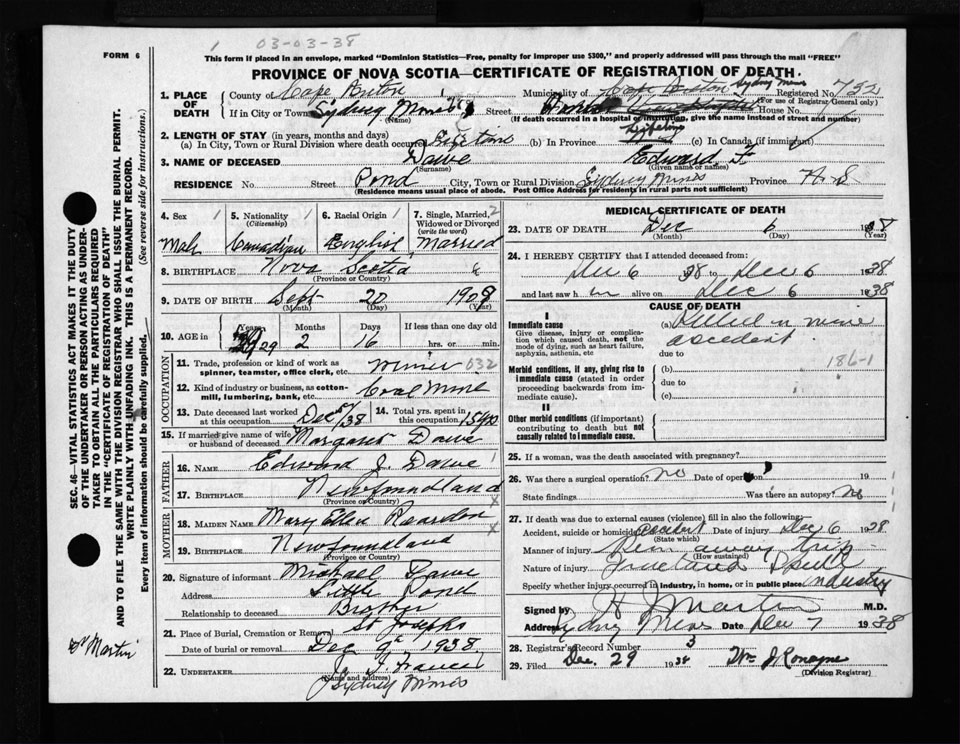 1 03-03-38
FORM 6
This form if placed in an envelope, marked "Dominion Statistics—Free, penalty for improper use $300," and properly addressed will pass through the mail "FREE"
PROVINCE OF NOVA SCOTIA—CERTIFICATE OF REGISTRATION OF DEATH.
1. PLACE OF DEATH
County of Cape Breton Municipality of Cape Breton Sydney Mines Registered No. 752
(For use of Registrar General only)
If in City or Town Sydney Mines Street House No.
(Name) (If death occurred in a hospital or institution, give name instead of street and number)
2. LENGTH OF STAY (in years, months and days)
(a) In City, Town or Rural Division where death occurred Lifetime (b) In Province Lifetime (c) In Canada (if immigrant)
3. NAME OF DECEASED Dawe Edward F
(Surname) (Given name or names)
RESIDENCE No. Street Pond City, Town or Rural Division Sydney Mines Province N.S
(Residence means usual place of abode. Post Office Address for residents in rural parts not sufficient)
4. Sex 1 Male
5. Nationality 1 (Citizenship) Canadian
6. Racial Origin 1 English
7. Single, Married, 2 Widowed or Divorced (write the word) married
8. BIRTHPLACE Nova Scotia
(Province or Country)
9. DATE OF BIRTH Sept 20 1909
(Month) (Day) (Year)
10. AGE in Years Months Days If less than one day
29 2 16 hrs. or min.
OCCUPATION
11. Trade, profession or kind of work as spinner, teamster, office clerk, etc. miner 032
12. Kind of industry or business, as cotton-mill, lumbering, bank, etc. Coal Mine
13. Date deceased last worked at this occupation. Dec 6/38
14. Total yrs. spent in this occupation. 15 yrs
15. If married give name of wife or husband of deceased Margaret Dawe
FATHER
16. NAME Edward J. Dawe 1
17. BIRTHPLACE Newfoundland
(Province or Country) x
MOTHER
18. MAIDEN NAME Mary Ellen Reardon
x
19. BIRTHPLACE Newfoundland
(Province or Country)
20. Signature of informant Michael Dawe
Address Little Pond
Relationship to deceased Brother
21. Place of Burial, Cremation or Removal St Josephs
Date of burial or removal Dec 9th 1938
22. UNDERTAKER J. J. Francis
(Name and address)
Sydney Mines
MEDICAL CERTIFICATE OF DEATH
23. DATE OF DEATH Dec 6 1938
(Month) (Day) (Year)
24. I HEREBY CERTIFY that I attended deceased from:
Dec 6 38 to Dec 6 1938
and last saw him alive on Dec 6 1938
CAUSE OF DEATH
I
Immediate cause (a) Killed in mine
Give disease, injury or complication which caused death, not the mode of dying, such as heart failure, asphyxia, asthenia, etc
accident
due to
186-1
Morbid conditions, if any, giving rise to immediate cause (stated in order proceeding backwards from immediate cause).
(b)
due to
(c)
II
Other morbid conditions (if important) contributing to death but not causally related to immediate cause.
25. If a woman, was the death associated with pregnancy?
26. Was there a surgical operation? No Date of operation 19
State findings Was there an autopsy? No
27. If death was due to external causes (violence) fill in also the following:
Accident, suicide or homicide? Accident Date of injury Dec 6 1938
(State which)
Manner of injury Run away trip
(How sustained)
Nature of injury Fractured Skull
Specify whether injury occurred in industry, in home, or in public place industry
Signed by H J Martin M.D.
Address Sydney Mines Date Dec 7 1938
28. Registrar's Record Number 3
29. Filed Dec. 29 1938 Wm J Ronayne
(Division Registrar)
SEC. 46—VITAL STATISTICS ACT MAKES IT THE DUTY OF THE UNDERTAKER OR PERSON ACTING AS UNDERTAKER TO OBTAIN ALL THE PARTICULARS REQUIRED IN THE "CERTIFICATE OF REGISTRATION OF DEATH"
AND TO FILE THE SAME WITH THE DIVISION REGISTRAR WHO SHALL ISSUE THE BURIAL PERMIT.
WRITE PLAINLY WITH UNFADING INK. THIS IS A PERMANENT RECORD.
Every item of information should be carefully supplied. (See reverse side for instructions.)
Dr Martin